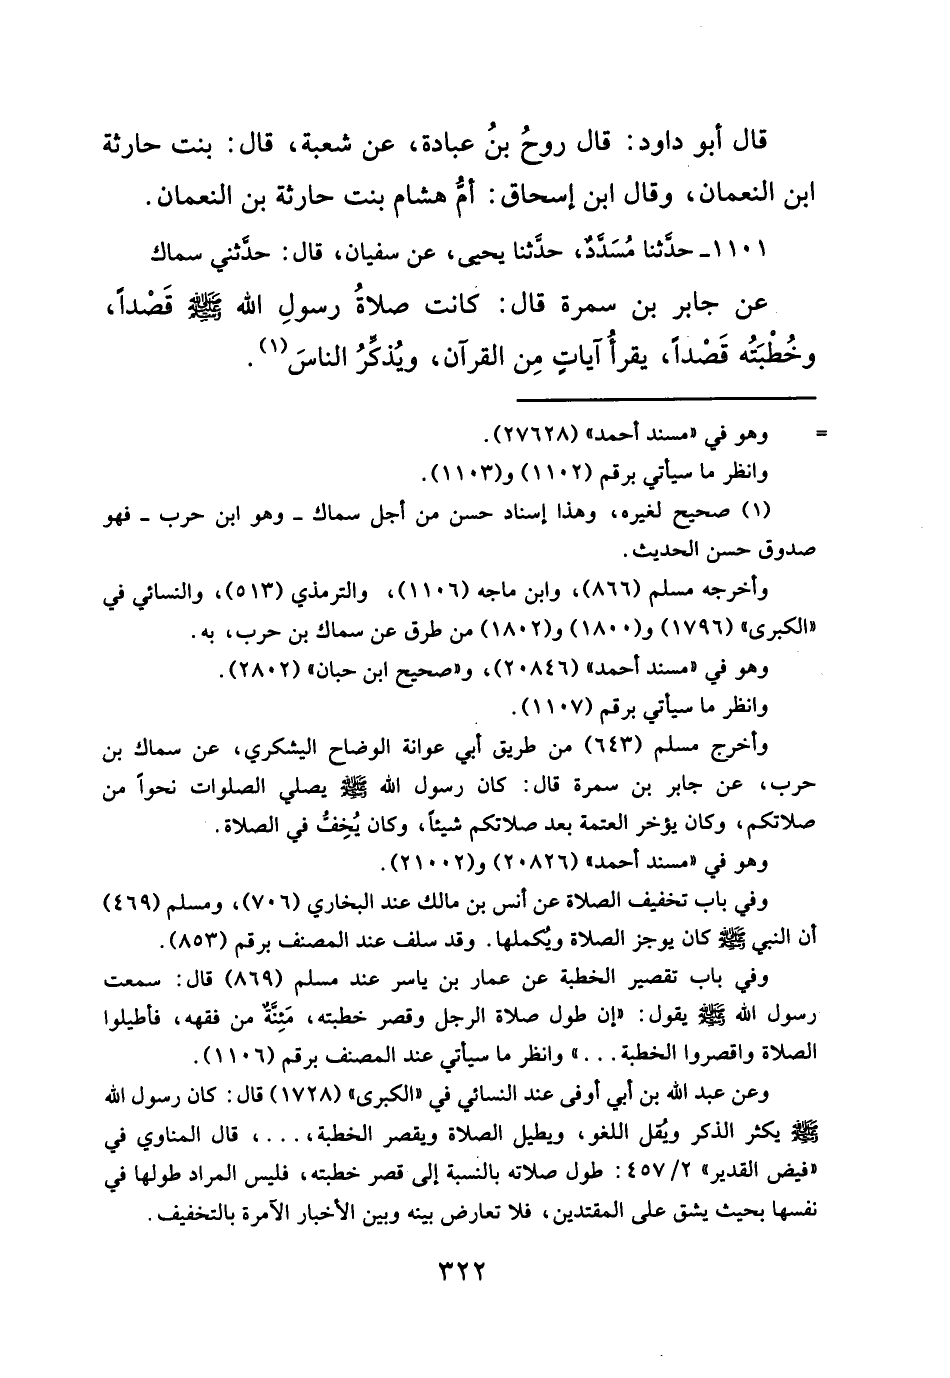 قال أبو داود: قال روحُ بنُ عبادة، عن شعبة، قال: بنت حارثة
ابن النعمان، وقال ابن إسحاق: أمُّ هشام بنت حارثة بن النعمان.
١١٠١ـ حدَّثنا مُسَدَّدٌ، حدَّثنا يحيى، عن سفيان، قال: حدَّثني سماك
عن جابر بن سمرة قال: كانت صلاةُ رسولِ الله ﷺ قَصْداً،
وخُطْبَتُه قَصْداً، يقرأُ آياتٍ مِن القرآن، ويُذكِّرُ الناسَ(١).
= وهو في «مسند أحمد» (٢٧٦٢٨).
وانظر ما سيأتي برقم (١١٠٢) و(١١٠٣).
(١) صحيح لغيره، وهذا إسناد حسن من أجل سماك ـ وهو ابن حرب ـ فهو
صدوق حسن الحديث.
وأخرجه مسلم (٨٦٦)، وابن ماجه (١١٠٦)، والترمذي (٥١٣)، والنسائي في
«الكبرى» (١٧٩٦) و(١٨٠٠) و(١٨٠٢) من طرق عن سماك بن حرب، به.
وهو في «مسند أحمد» (٢٠٨٤٦)، و«صحيح ابن حبان» (٢٨٠٢).
وانظر ما سيأتي برقم (١١٠٧).
وأخرج مسلم (٦٤٣) من طريق أبي عوانة الوضاح اليشكري، عن سماك بن
حرب، عن جابر بن سمرة قال: كان رسول الله ﷺ يصلي الصلوات نحواً من
صلاتكم، وكان يؤخر العتمة بعد صلاتكم شيئاً، وكان يُخِفُّ في الصلاة.
وهو في «مسند أحمد» (٢٠٨٢٦) و(٢١٠٠٢).
وفي باب تخفيف الصلاة عن أنس بن مالك عند البخاري (٧٠٦)، ومسلم (٤٦٩)
أن النبي ﷺ كان يوجز الصلاة ويُكملها. وقد سلف عند المصنف برقم (٨٥٣).
وفي باب تقصير الخطبة عن عمار بن ياسر عند مسلم (٨٦٩) قال: سمعت
رسول الله ﷺ يقول: «إن طول صلاة الرجل وقصر خطبته، مَئِنَّةٌ من فقهه، فأطيلوا
الصلاة واقصروا الخطبة...» وانظر ما سيأتي عند المصنف برقم (١١٠٦).
وعن عبد الله بن أبي أوفى عند النسائي في «الكبرى» (١٧٢٨) قال: كان رسول الله
ﷺ يكثر الذكر ويُقل اللغو، ويطيل الصلاة ويقصر الخطبة،...، قال المناوي في
«فيض القدير» ٢/ ٤٥٧: طول صلاته بالنسبة إلى قصر خطبته، فليس المراد طولها في
نفسها بحيث يشق على المقتدين، فلا تعارض بينه وبين الأخبار الآمرة بالتخفيف.
٣٢٢